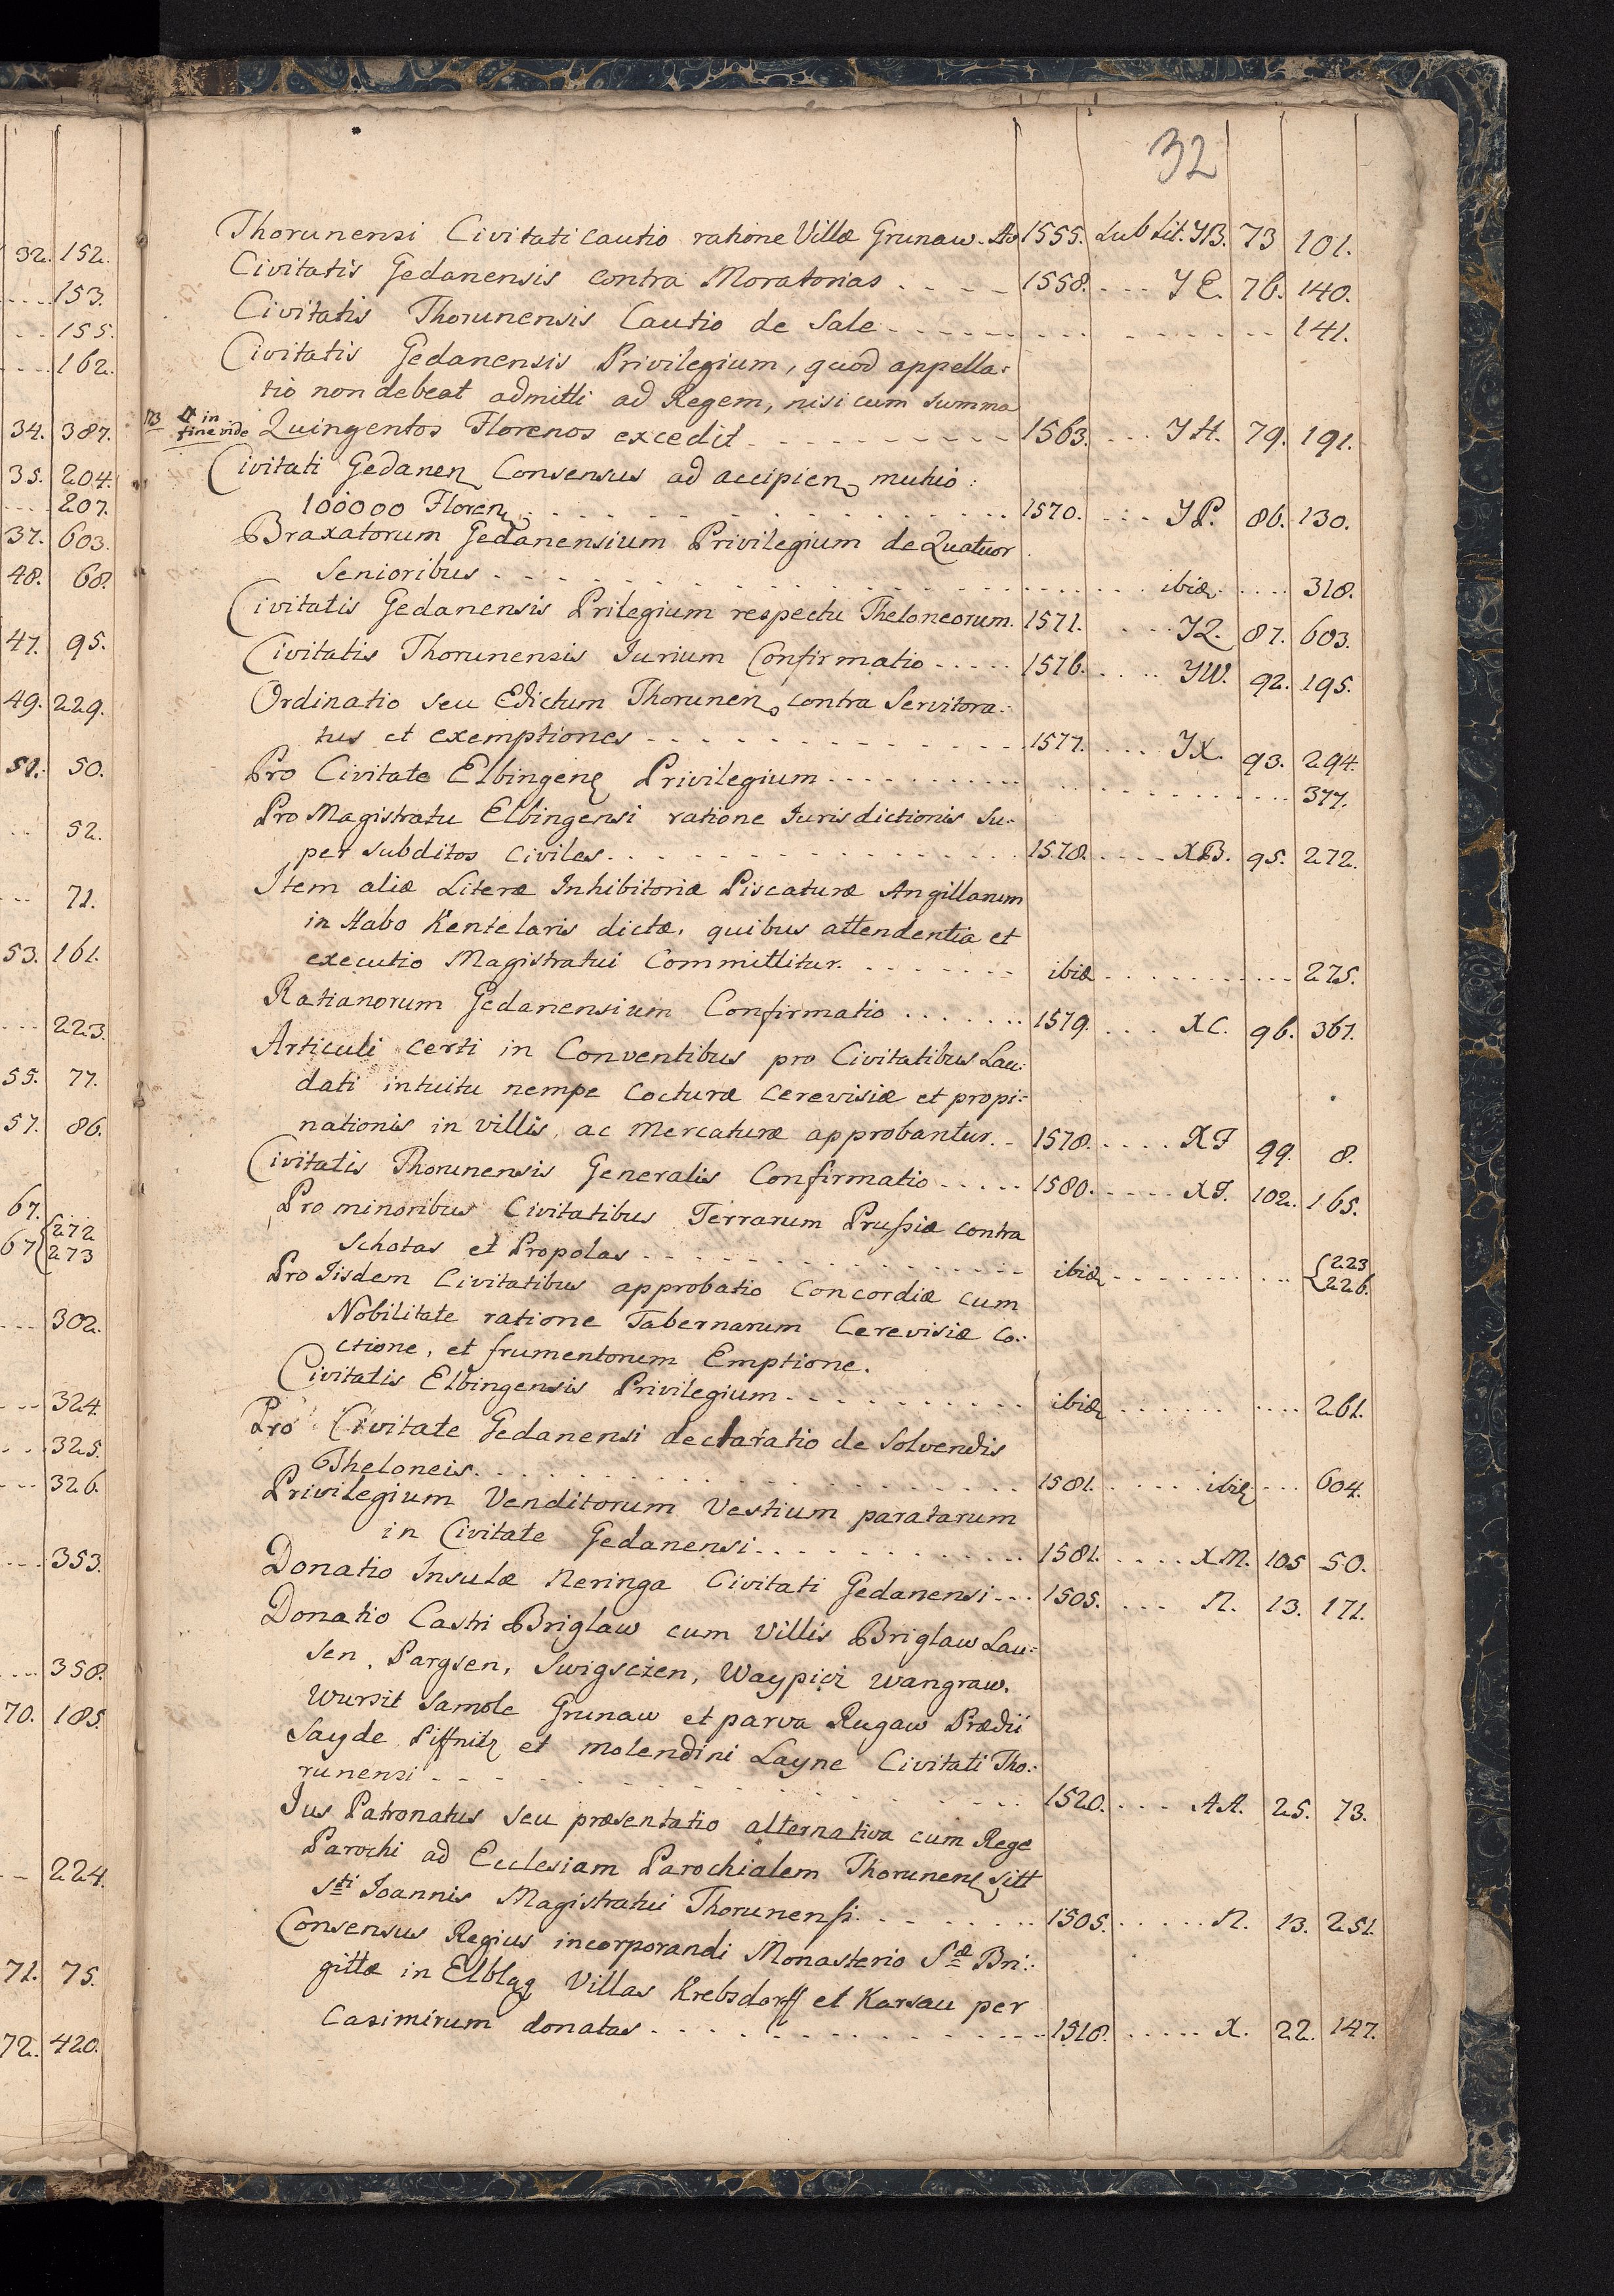 32
32. 152.
153.
155.
162.
34. 387.
35. 204.
207.
37. 603.
48. 68.
47. 95.
49. 229.
51. 50.
52.
71.
53. 161.
223.
55. 77.
57. 86.
67.
67 {272
273
302.
324.
325.
326.
353.
358.
70. 185.
224.
71. 75.
72. 420.
Thorunensi Civitati cautio ratione Villæ Grunaw. Ao 1555. Sub Lit. YB. 73 101.
Civitatis Gedanensis contra Moratorias 1558. YE. 76. 140.
Civitatis Thorunensis Cautio de Sale 141.
Civitatis Gedanensis Privilegium, quod appella:
tio non debeat admitti ad Regem, nisi cum summa
in
fine vide Quingentos Florenos excedit 1563. YH. 79. 191.
Civitati Gedanen Consensus ad accipien mutuo:
100000 Floren 1570. YP. 86. 130.
Braxatorum Gedanensium Privilegium de Quatuor
Senioribus ibid 318.
Civitatis Gedanensis Prilegium respectu Theloneorum. 1571. YQ. 87. 603.
Civitatis Thorunensis Iurium Confirmatio 1576. YW. 92. 195.
Ordinatio seu Edictum Thorunen contra Servitora:
tus et exemptiones 1577. YX. 93. 294.
Pro Civitate Elbingen Privilegium 377.
Pro Magistratu Elbingensi ratione Iurisdictionis Su:
per subditos civiles 1578. XB. 95. 272.
Item aliæ Literæ Inhibitoriæ Piscaturæ Angillarum
in Habo Kentelaris dictæ, quibus attendentia et
executio Magistratui Committitur. ibid 275.
Ratianorum Gedanensium Confirmatio 1579. XC. 96. 367.
Articuli certi in Conventibus pro Civitatibus Lau:
dati intuitu nempe Cocturæ Cerevisiæ et propi:
nationis in villis, ac Mercaturæ approbantur. 1578. XF 99. 8.
Civitatis Thorunensis Generalis Confirmatio 1580. XI. 102. 165.
Pro minoribus Civitatibus Terrarum Prussiæ contra
Schotas et Propolas ibid {223
226.
Pro Iisdem Civitatibus approbatio Concordiæ cum
Nobilitate ratione Tabernarum Cerevisiæ Co:
ctione, et frumentorum Emptione.
Civitatis Elbingensis Privilegium ibid 261.
Pro Civitate Gedanensi declaratio de Solvendis
Theloneis. 1581. ibid 604.
Privilegium Venditorum Vestium paratarum
in Civitate Gedanensi 1581. XM. 105 50.
Donatio Insulæ Neringa Civitati Gedanensi 1505. N. 13. 171.
Donatio Castri Briglaw cum Villis Briglaw Lau:
sen, Pargsen, Swigsczen, Waypicz Wangraw,
Wursit Samole Grunaw et parva Rugaw Prædii
Sayde Piffnitz et molendini Layne Civitati Tho:
runensi 1520. AA. 25. 73.
Ius Patronatus seu præsentatio alternativa cum Rege
Parochi ad Ecclesiam Parochialem Thorunen titt
Sti Ioannis Magistratui Thorunensi. 1505. N. 13. 251.
Consensus Regius incorporandi Monasterio Sæ Bri:
gittæ in Elbląg Villas Krebsdorff et Karsau per
Casimirum donatas 1518. X. 22. 147.